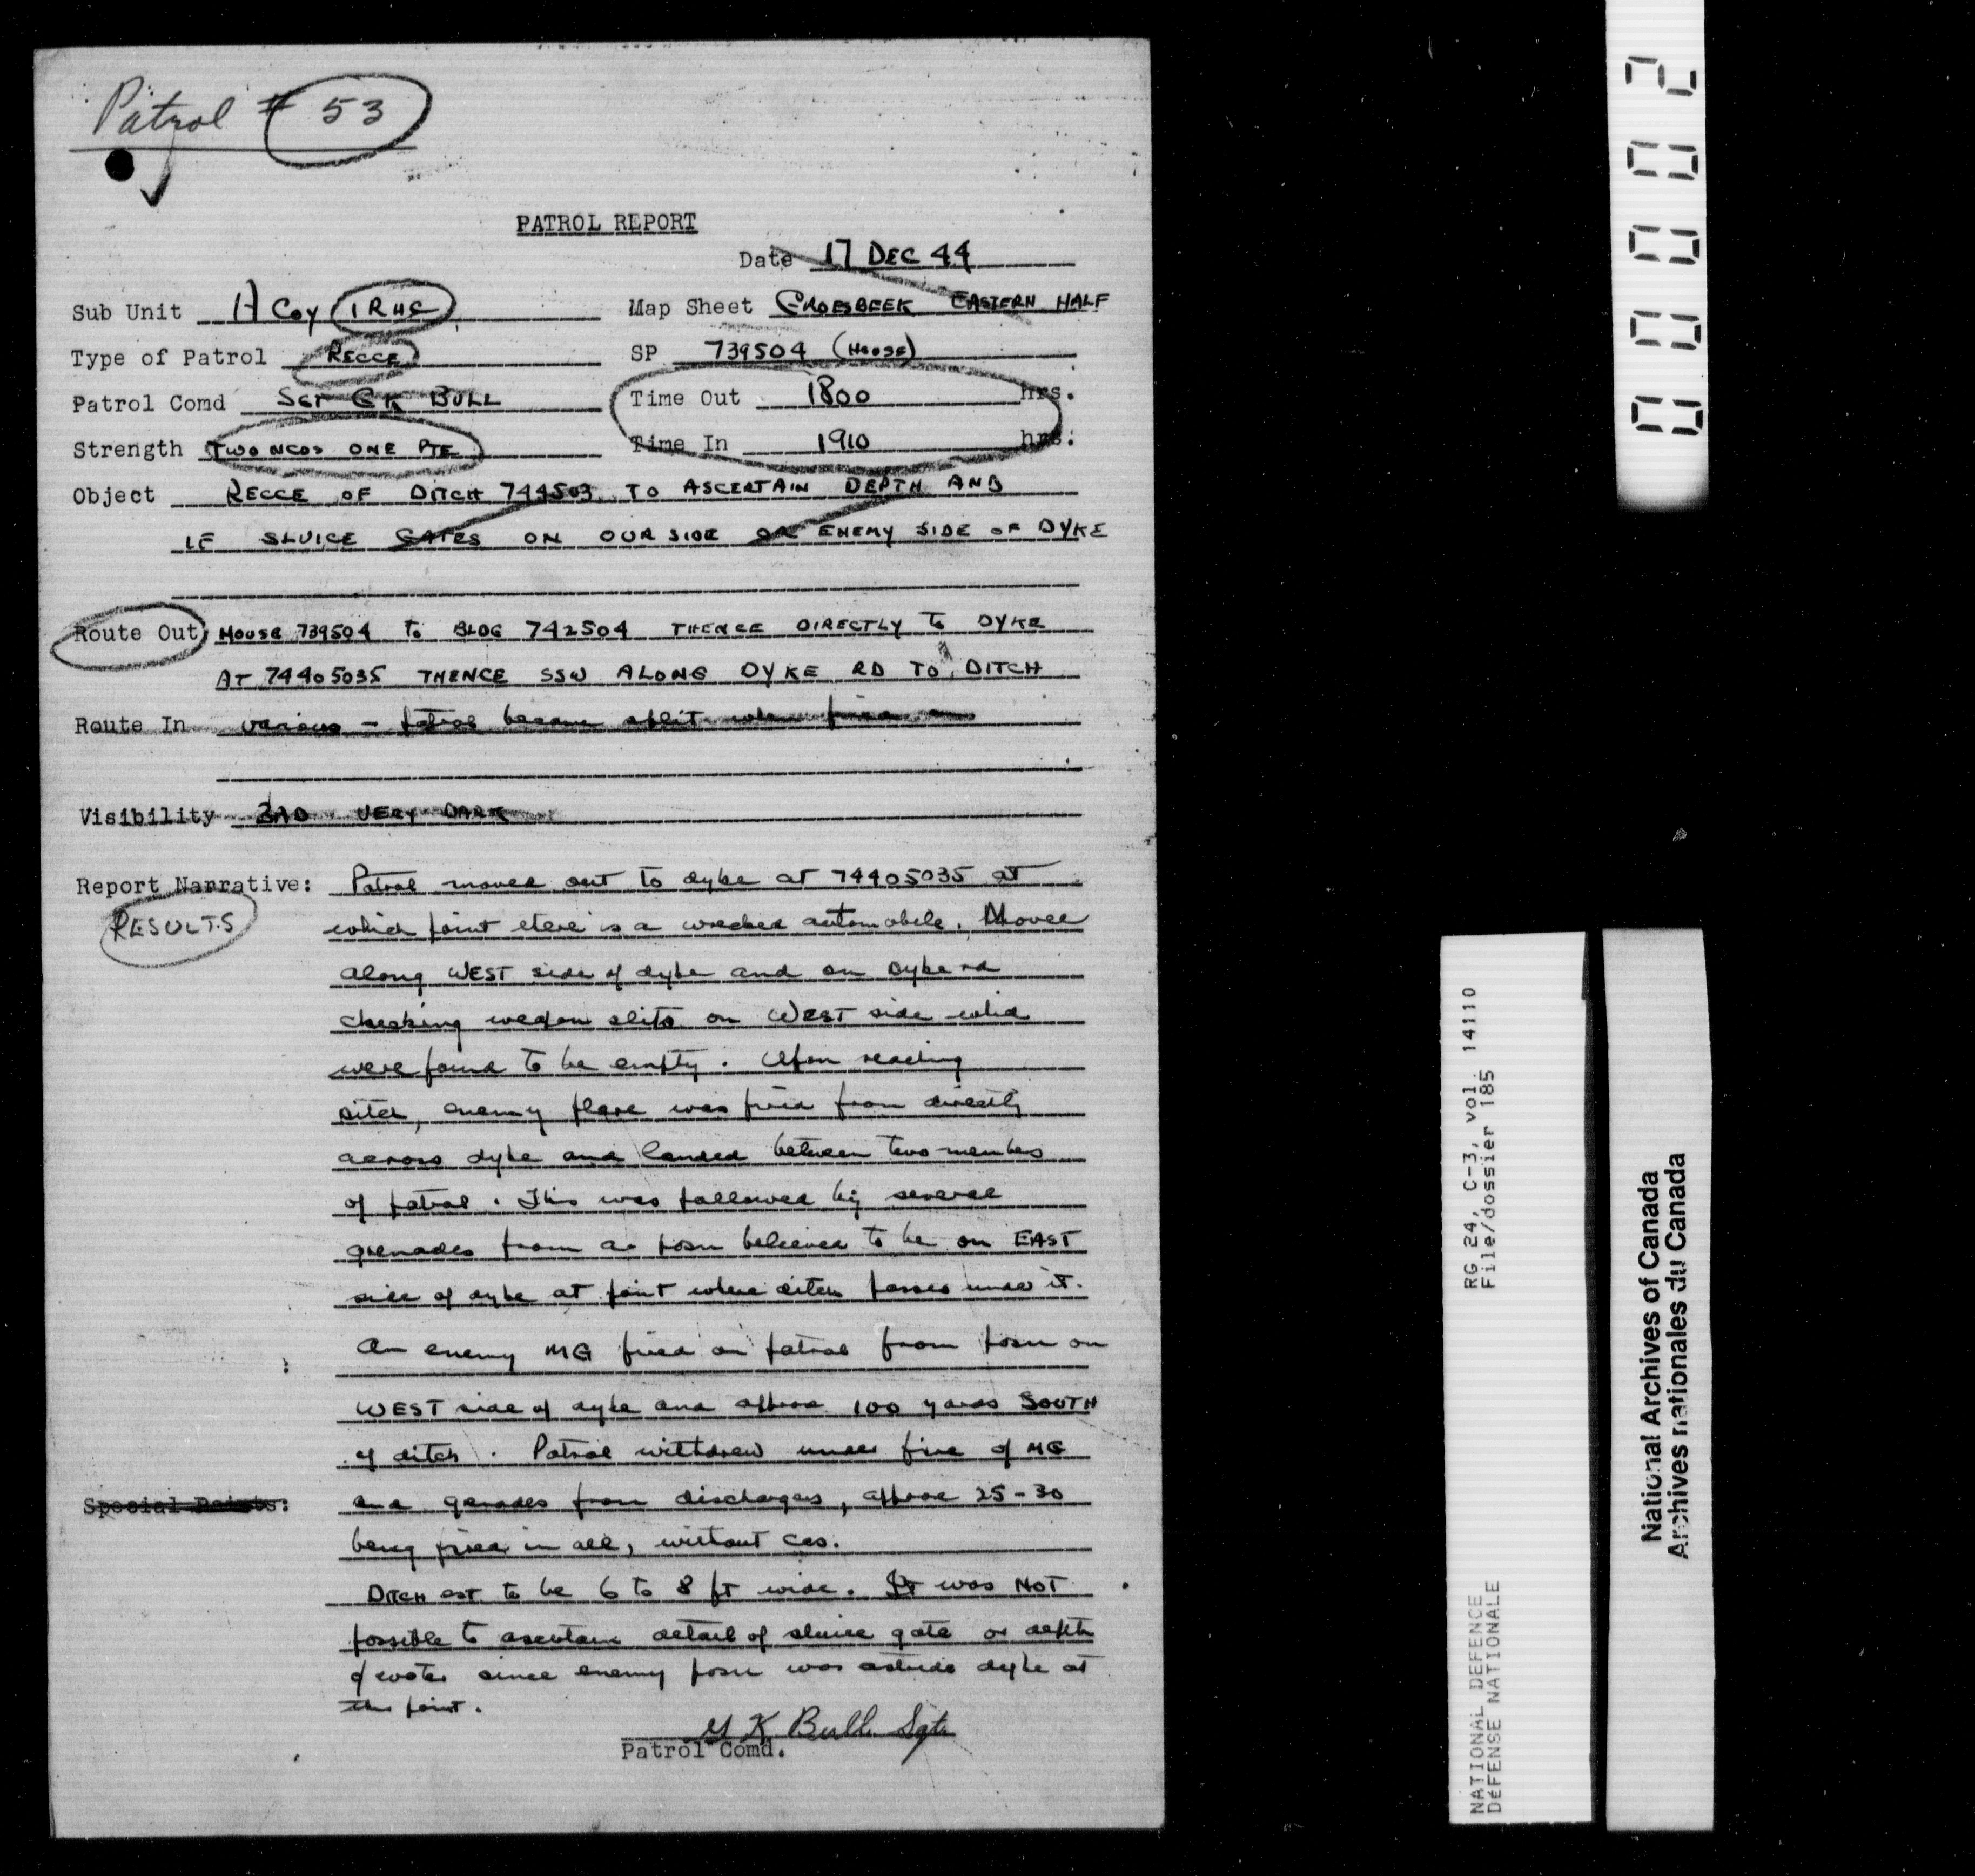 Patrol # 53
PATROL REPORT
Date 17 DEC 44
Sub Unit A Coy 1 RHC
Map Sheet GROESBEEK EASTERN HALF
Type of Patrol RECCE
SP 739504 (HOUSE)
Patrol Comd SGT GK BULL
Time Out 1800 hrs.
Strength TWO NCOS ONE PTE
Time In 1910 hrs.
Object RECCE OF DITCH 744503 TO ASCERTAIN DEPTH AND
IF SLUICE GATES ON OUR SIDE OR ENEMY SIDE OF DYKE
Route Out HOUSE 739504 To BLDG 742504 THENCE DIRECTLY To DYKE
AT 74405035 THENCE SSW ALONG DYKE RD TO DITCH
Route In various - patrol became split when fired on
Visibility BAD VERY DARK
Report Narrative: Patrol moved out to dyke at 74405035 at
RESULTS
which point there is a wrecked automobile. Moved
along WEST side of dyke and on dyke rd
checking weapon slits on WEST side which
were found to be empty. Upon reaching
ditch, enemy flare was fired from directly
across dyke and landed between two members
of patrol. This was followed by several
grenades from a posn believed to be on EAST
side of dyke at point where ditch passes under it.
An enemy MG fired on patrol from posn on
WEST side of dyke and approx 100 yards SOUTH
of ditch. Patrol withdrew under fire of MG
Special Points: and grenades from dischargers, approx 25-30
being fired in all, without cas.
DITCH est to be 6 to 8 ft wide. It was NOT
possible to ascertain detail of sluice gate or depth
of water since enemy posn was astride dyke at
this point.
G K Bull Sgt
Patrol Comd.
00002
RG 24, C-3, vol. 14110
File/dossier 185
NATIONAL DEFENCE
DÉFENSE NATIONALE
National Archives of Canada
Archives nationales du Canada